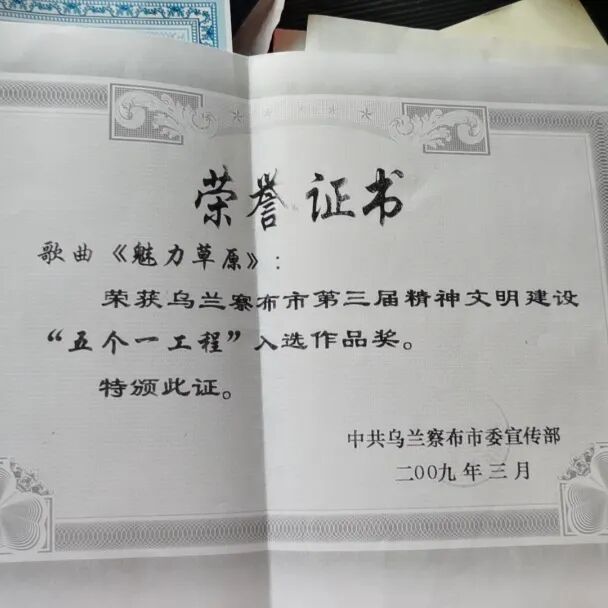 荣誉证书
歌曲《魅力草原》:
荣获乌兰察布市第三届精神文明建设
“五个一工程”入选作品奖。
特颁此证。
中共乌兰察布市委宣传部
二00九年三月